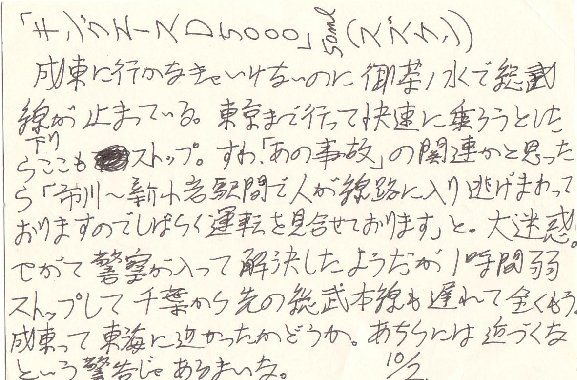 「キングエースD5000」50ml(スズケン)
成東に行かなきゃいけないのに御茶ノ水で総武
線が止まっている。東京まで行って快速に乗ろうとした
下り
らここもストップ。すわ、「あの事故」の関連かと思った
ら「市川～新小岩駅間で人が線路に入り逃げまわって
おりますのでしばらく運転を見合せております」と。大迷惑。
やがて警察が入って解決したようだが1時間弱
ストップして千葉から先の総武本線も遅れて全くもう。
成東って東海に近かったかどうか。あちらには近づくな
という警告じゃあるまいな。
10/2